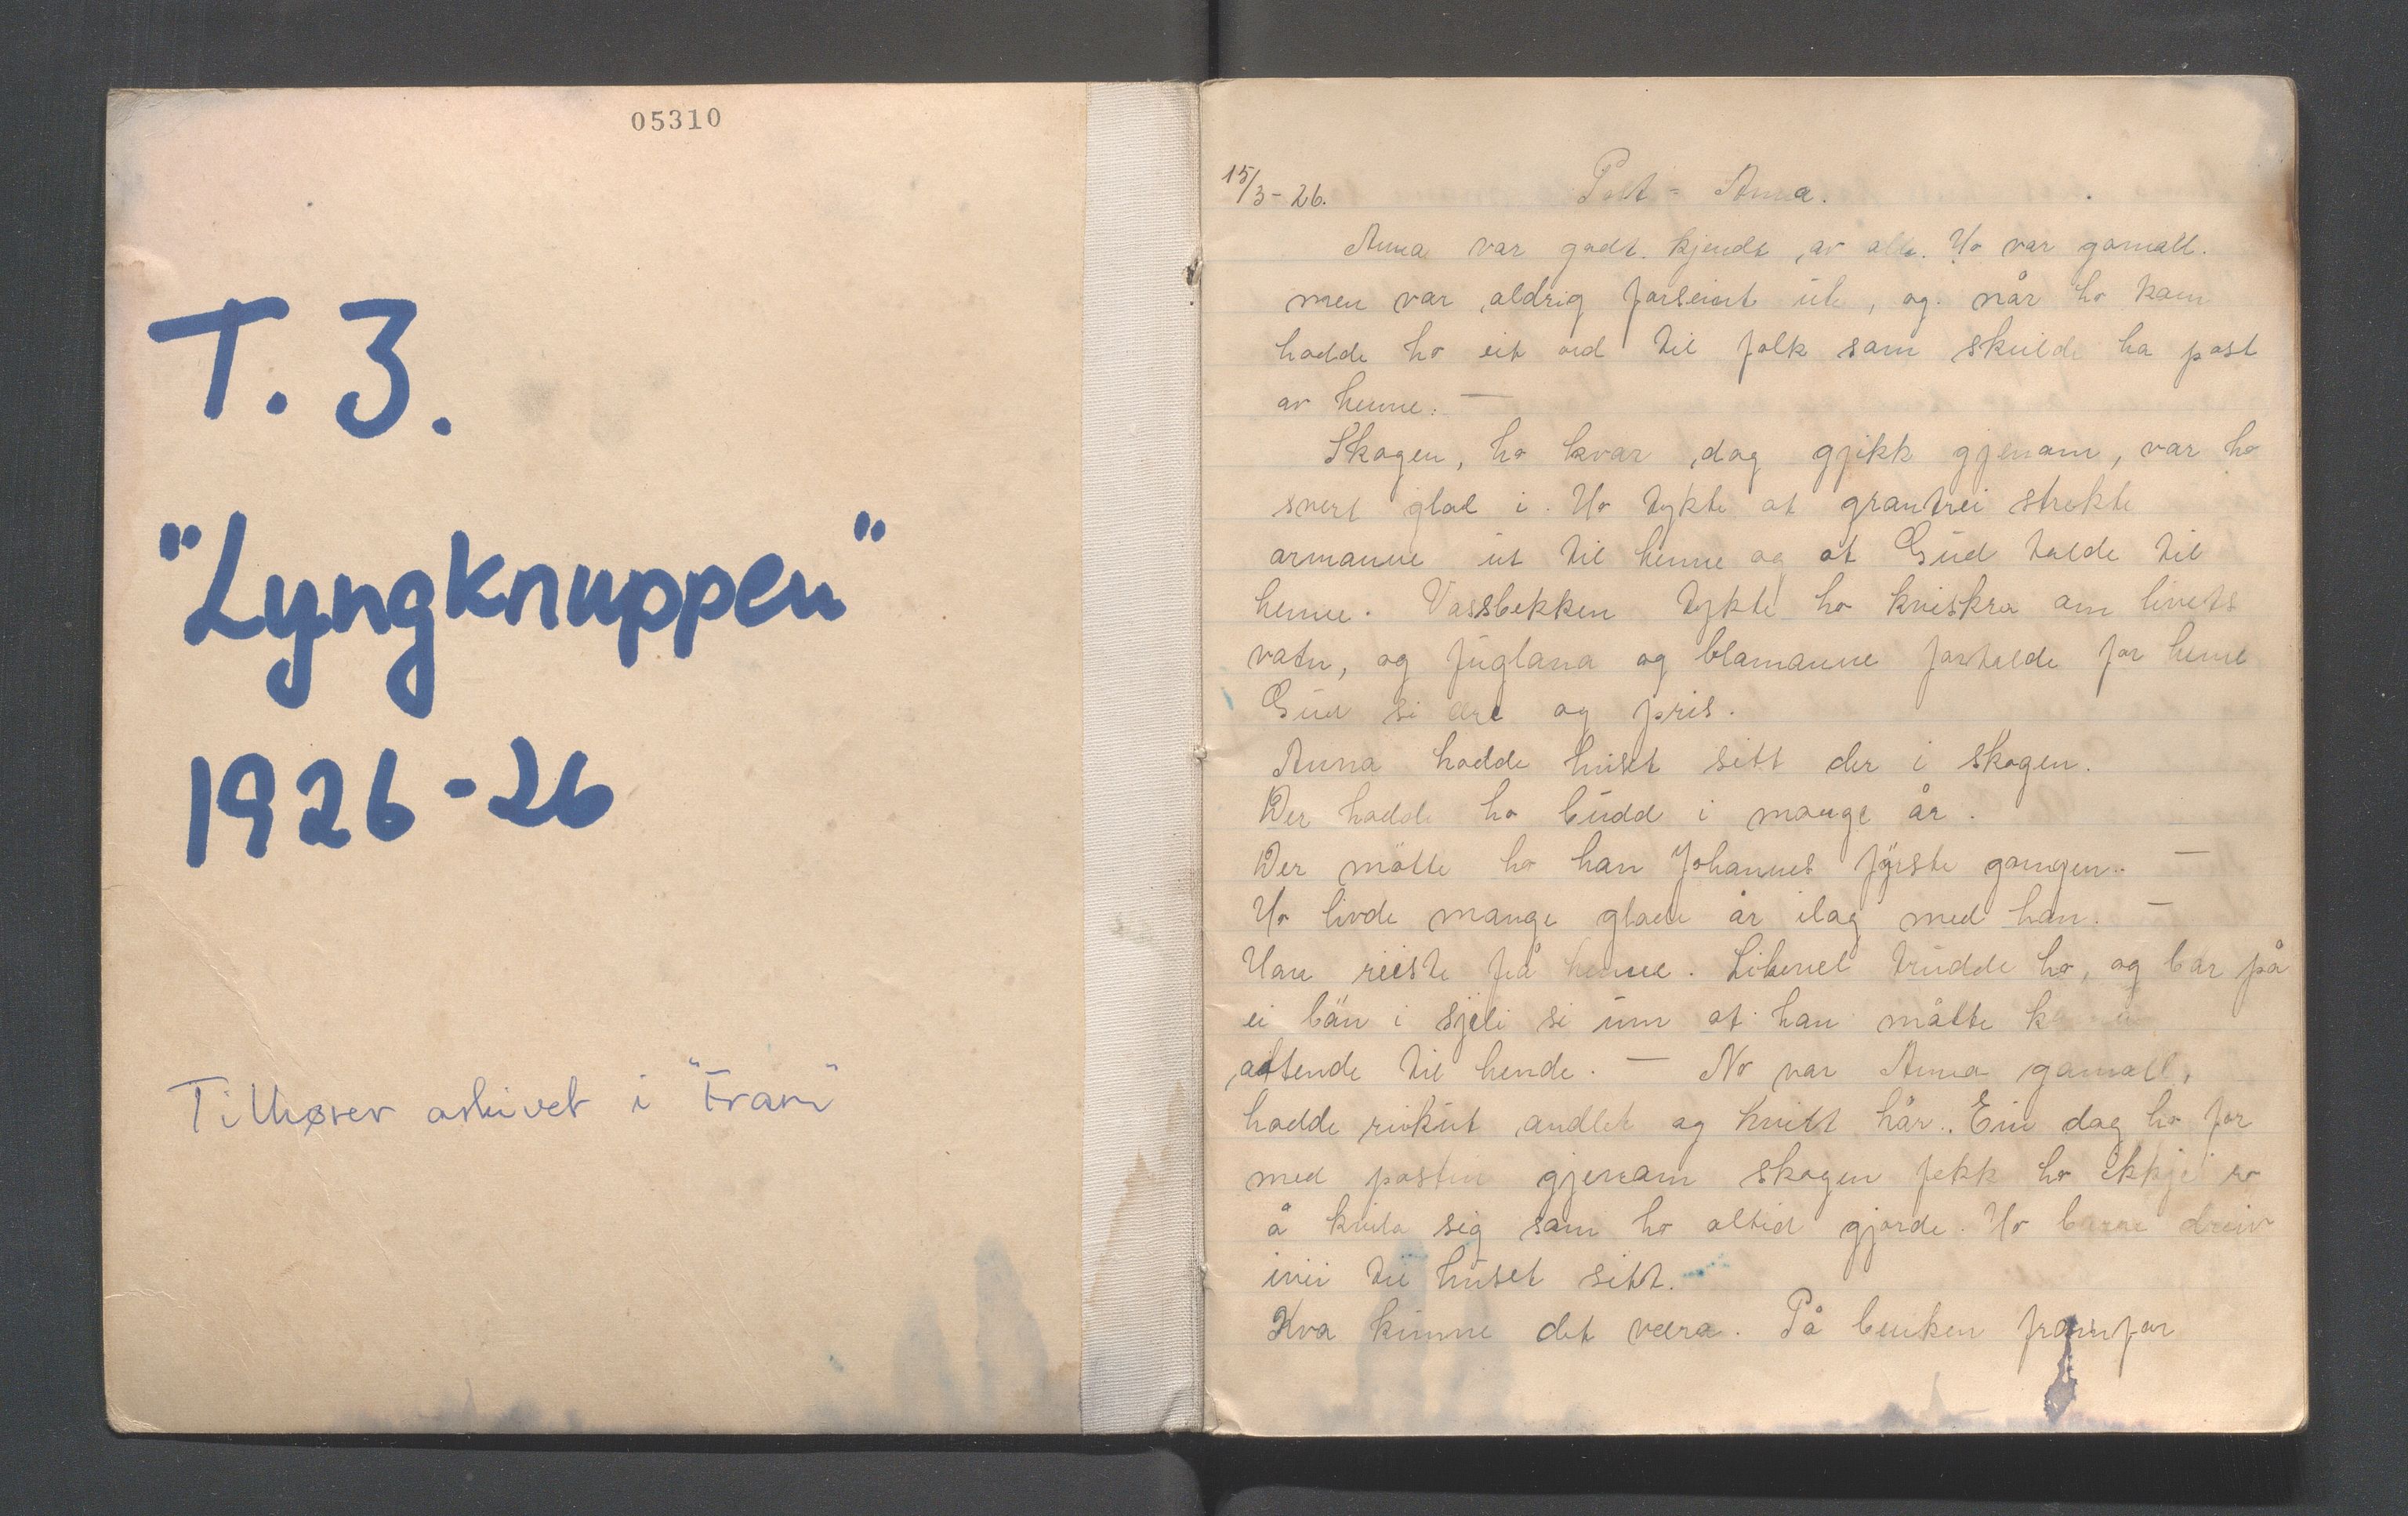 05310
T. 3.
"Lyngknuppen"
1926-26
Tilhører arkivet i "Fram"
15/3-26.
Post-Anna.
Anna var godt kjendt av alle. Ho var gamall.
men var aldrig forseint ute, og når ho kom
hadde ho eit ord til folk som skulde ha post
av henne. —
Skogen, ho kvar dag gjikk gjenom, var ho
svert glad i. Ho tykte at grantrei strekte
armanne ut til henne og at Gud talde til
henne. Vassbekken tykte ho kviskra om livets
vatn, og fuglana og blomanne fortalde for henne
Gud si ære og pris.
Anna hadde huset sitt der i skogen.
Der hadde ho budd i mange år.
Der møtte ho han Johannes fyrste gongen. —
Ho livde mange glade år ilag med han. —
Han reiste frå henne. Likevel trudde ho, og bar på
ei bön i sjeli si um at han måtte
attende til hende. — No var Anna gamall,
hadde rivkut andlet og kvitt hår. Ein dag ho for
med posten gjenom skogen fekk ho ikkje ro
å kvila sig som ho altid gjorde. Ho berre dreiv
ivei til huset sitt.
Kva kunne det væra. På benken framfor